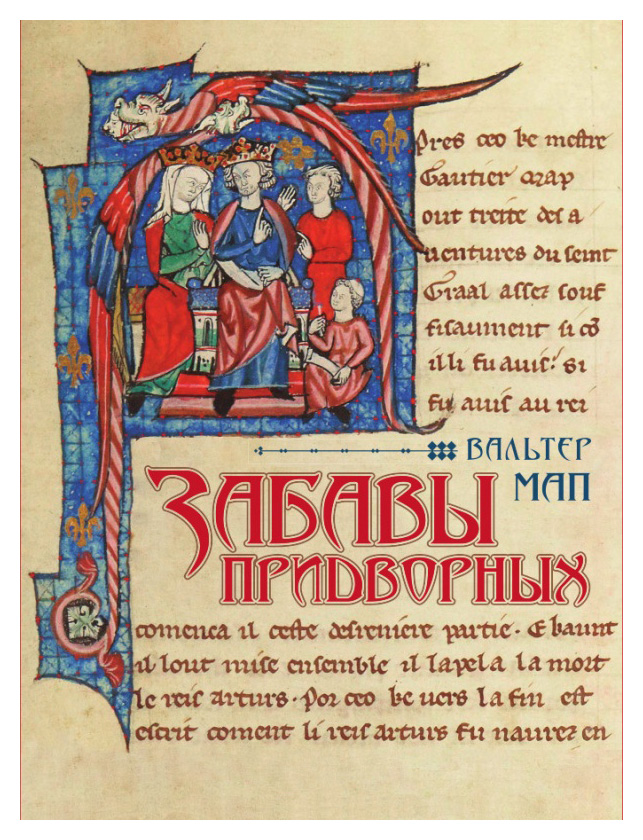 Apres ceo ke mestre
Gautier map
out treite des a
uentures du seint
Graal assez souf
fisaument si cō
il li fu auis. si
fu auis au rei
ВАЛЬТЕР
МАП
ЗАБАВЫ
ПРИДВОРНЫХ
comenca il ceste desreniere partie. E kaunt
il lout mise ensemble il lapela la mort
le reis arturs. Por ceo ke uers la fin est
escrit coment li reis arturs fu naurez en